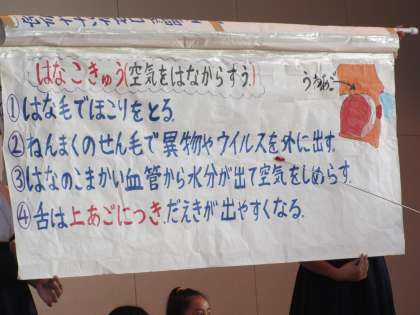 はなこきゅう(空気をはなからすう!)
うわあご
①はな毛でほこりをとる.
②ねんまくのせん毛で異物やウイルスを外に出す.
③はなのこまかい血管から水分が出て空気をしめらす.
④舌は上あごにつき.だえきが出やすくなる.